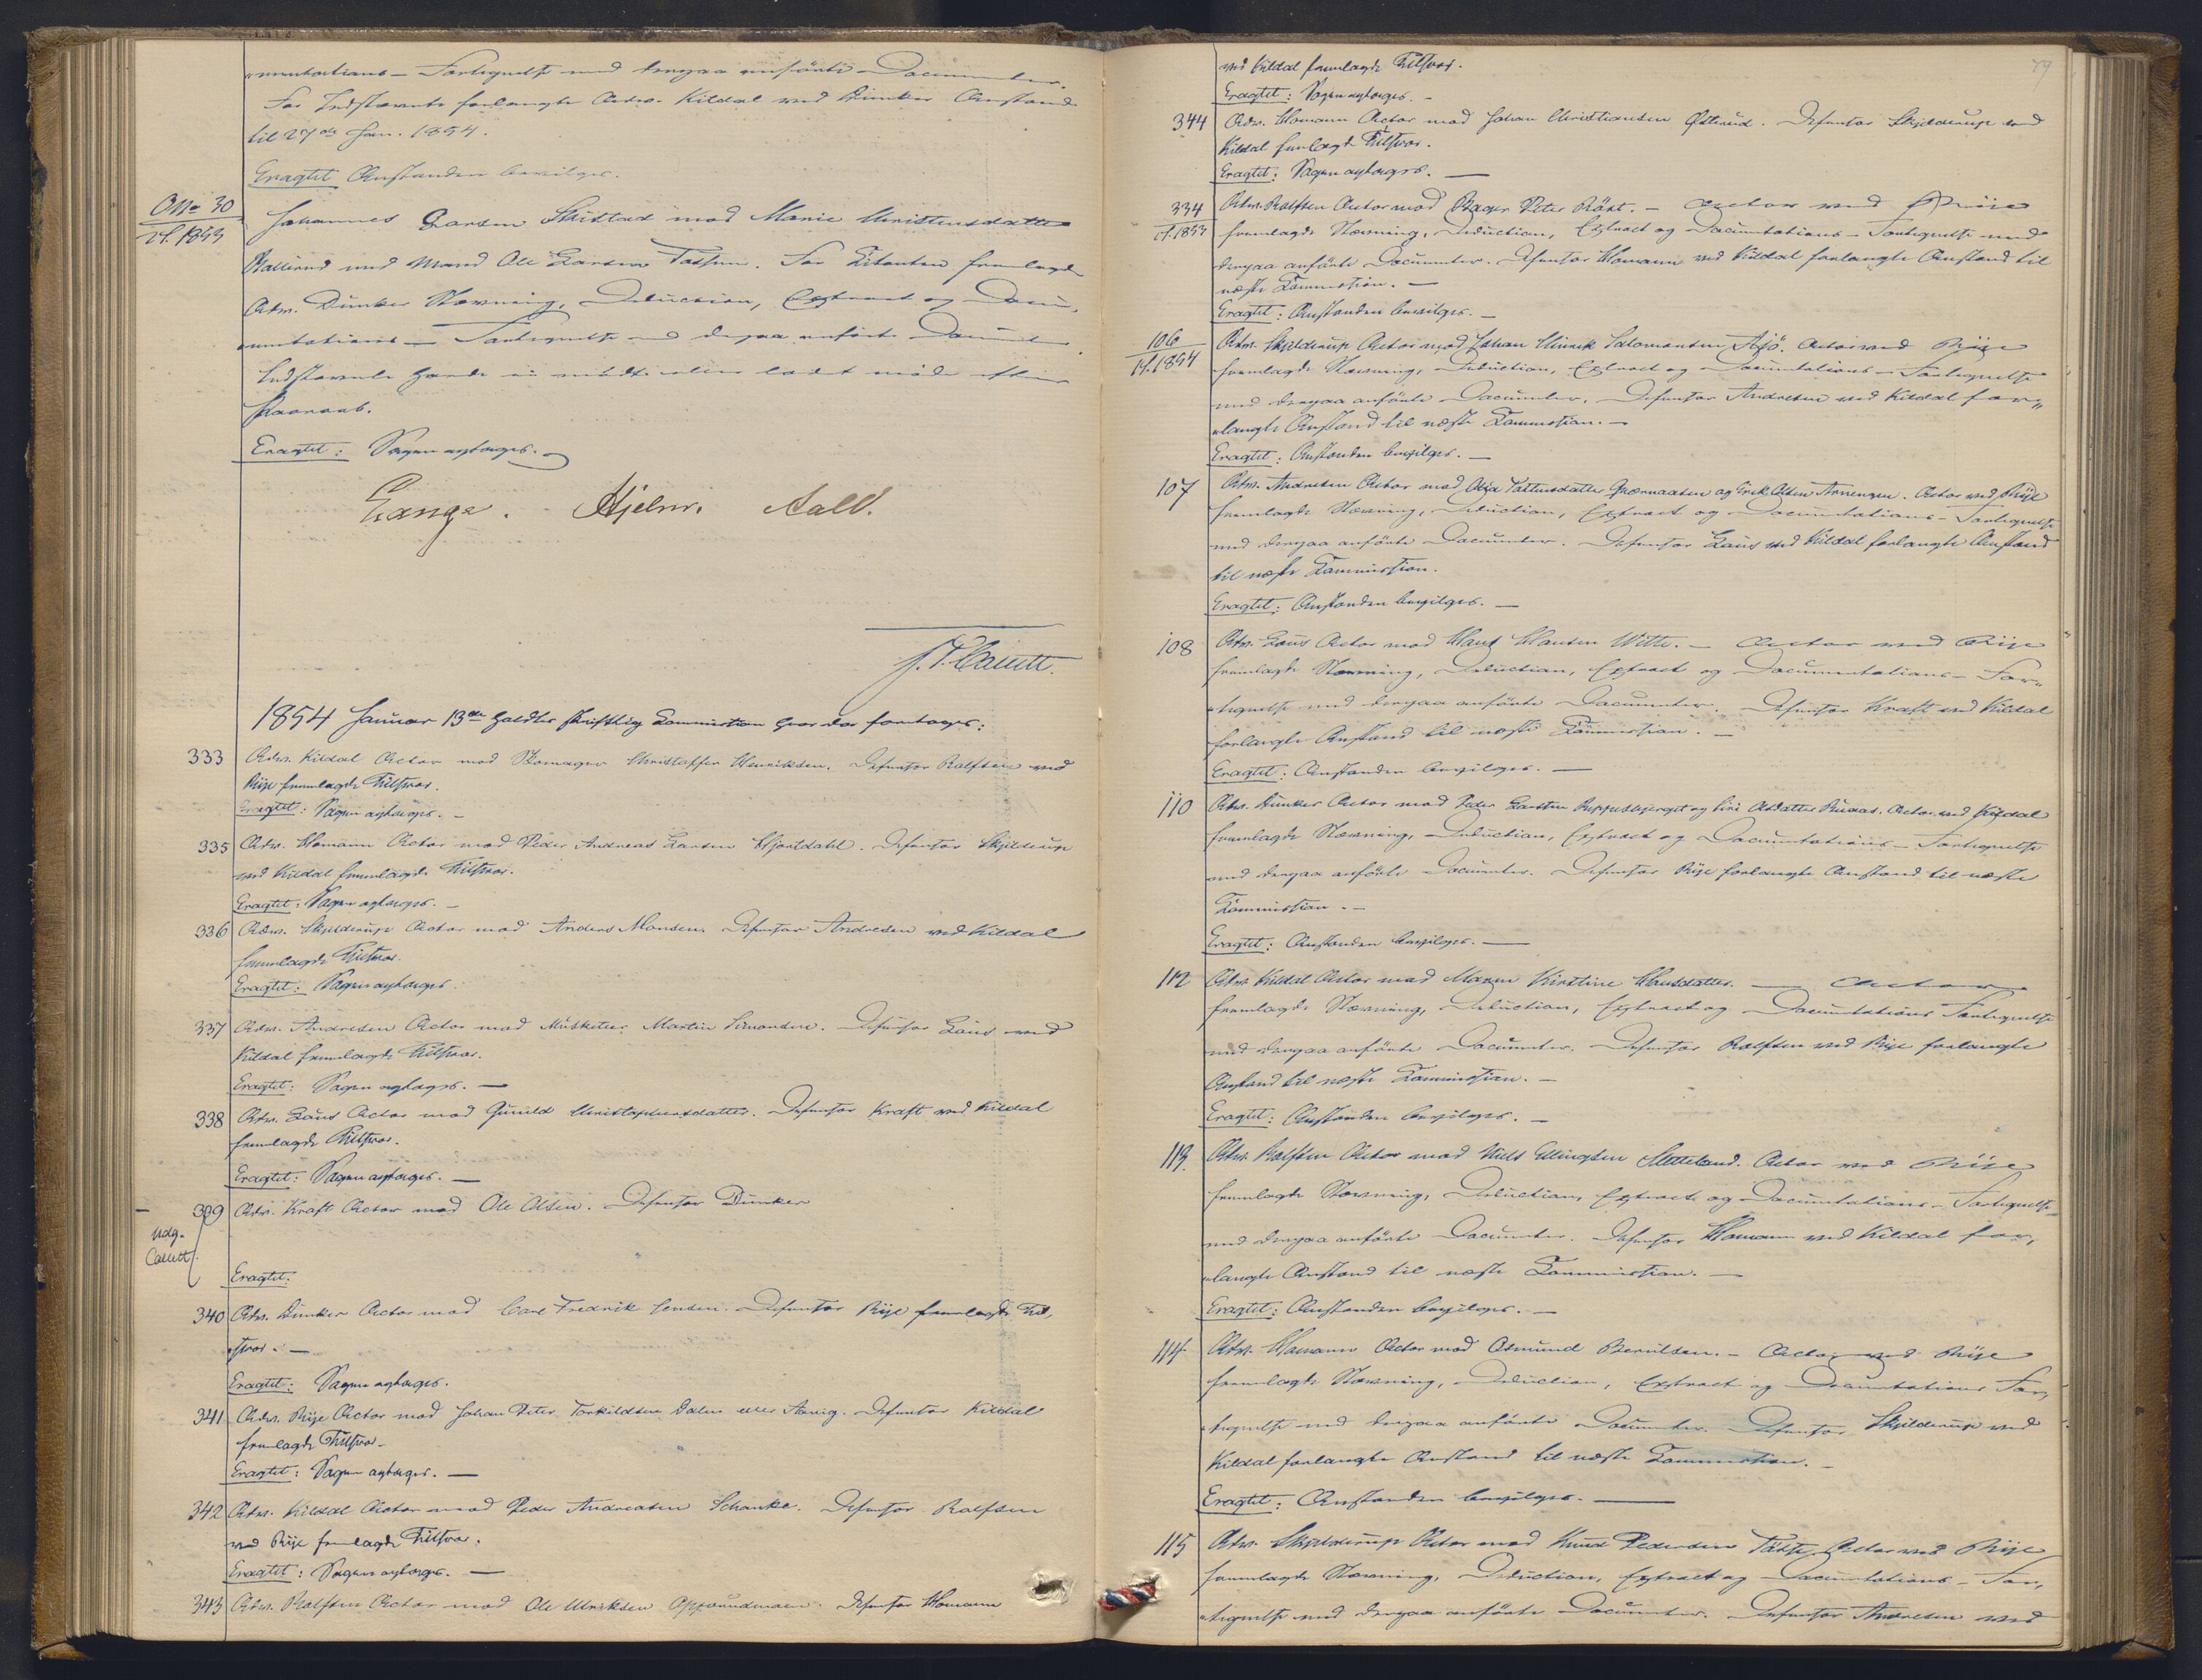 mentations-Fortegnelse med derpaa anførte Documenter.
For Indstævnte forlangte Adv. Kildal ved Dunker Anstand
til 27de Jan. 1854.
Eragtet Anstanden bevilges.
No 30
Johannes Larsen Skistad mod Marie Christensdatter
f. 1853
med Mand Ole Larsen. For Citanten fremlagde
Adv. Dunker Stævning, Deduction, Extract og Docu-
mentations-Fortegnelse med derpaa anførte Documenter.
Indstævnte havde ei mødt eller ladet møde efter
Paaraab.
Eragtet: Sagen optages.
Lange. Hjelm. Aall.
1854 Januar 13de holdtes skriftlig Commission hvor da foretoges:
333 Adv. Kildal Actor mod Skomager Christoffer Henriksen. Defensor Rolfsen ved
Rije fremlagde Tilsvar.
Eragtet: Sagen optages.
335 Adv. Homann Actor mod Peder Andreas Larsen Hjortdahl. Defensor Skjelderup
ved Kildal fremlagde Tilsvar.
Eragtet: Sagen optages.
336 Adv. Skjelderup Actor mod Anders Monsen. Defensor Andresen ved Kildal
fremlagde Tilsvar.
Eragtet: Sagen optages.
337 Adv. Andresen Actor mod Musketeer Martin Simonsen. Defensor Laus ved
Kildal fremlagde Tilsvar.
Eragtet: Sagen optages.
338 Adv. Laus Actor mod Gunild Christophersdatter. Defensor Kraft ved Kildal
fremlagde Tilsvar.
Eragtet: Sagen optages.
339 Adv. Kraft Actor mod Ole Olsen. Defensor Dunker
Udg.
Eragtet:
340 Adv. Dunker Actor mod Carl Fredrik Jensen. Defensor Rije fremlagde Til-
svar.
Eragtet: Sagen optages.
341 Adv. Rije Actor mod Johan Peter Torkildsen Dalen eller. Defensor Kildal
fremlagde Tilsvar.
Eragtet: Sagen optages.
342 Adv. Kildal Actor mod Peder Andreasen Schanke. Defensor Rolfsen
ved Rije fremlagde Tilsvar.
Eragtet: Sagen optages.
343 Adv. Rolfsen Actor mod Ole Ulriksen. Defensor Homann
79
ved Kildal fremlagde Tilsvar.
Eragtet: Sagen optages.
344 Adv. Homann Actor mod Johan Christiansen Østerud. Defensor Skjelderup ved
Kildal fremlagde Tilsvar.
Eragtet: Sagen optages.
334 Adv. Rolfsen Actor mod Bager Peter. Actor ved Rije
f. 1853 fremlagde Stævning, Deduction, Extract og Documentations-Fortegnelse med
derpaa anførte Documenter. Defensor Homann ved Kildal forlangte Anstand til
næste Commission.
Eragtet: Anstanden bevilges.
106 Adv. Skjelderup Actor mod Johan Hinrik Salomonsen. Actor ved Rije
f. 1854 fremlagde Stævning, Deduction, Extract og Documentations-Fortegnelse
med derpaa anførte Documenter. Defensor Andresen ved Kildal for-
langte Anstand til næste Commission.
Eragtet: Anstanden bevilges.
107 Adv. Andresen Actor mod og Erik Olsen. Actor ved Rije
fremlagde Stævning, Deduction, Extract og Documentations-Fortegnelse
med derpaa anførte Documenter. Defensor Laus ved Kildal forlangte Anstand
til næste Commission.
Eragtet: Anstanden bevilges.
108 Adv. Laus Actor mod Hans Hansen Witte. Actor ved Rije
fremlagde Stævning, Deduction, Extract og Documentations-For-
tegnelse med derpaa anførte Documenter. Defensor Kraft ved Kildal
forlangte Anstand til næste Commission.
Eragtet: Anstanden bevilges.
110 Adv. Dunker Actor mod Peder Larsen og Siri. Actor ved Kildal
fremlagde Stævning, Deduction, Extract og Documentations-Fortegnelse
med derpaa anførte Documenter. Defensor Rije forlangte Anstand til næste
Commission.
Eragtet: Anstanden bevilges.
112 Adv. Kildal Actor mod Maren Kirstine Hansdatter. Actor
fremlagde Stævning, Deduction, Extract og Documentations Fortegnelse
med derpaa anførte Documenter. Defensor Rolfsen ved Rije forlangte
Anstand til næste Commission.
Eragtet: Anstanden bevilges.
113. Adv. Rolfsen Actor mod Niels Ellingsen Sletteland. Actor ved Rije
fremlagde Stævning, Deduction, Extract og Documentations-Fortegnelse
med derpaa anførte Documenter. Defensor Homann ved Kildal for-
langte Anstand til næste Commission.
Eragtet: Anstanden bevilges.
114 Adv. Homann Actor mod Asmund Berulsen. Actor ved Rije
fremlagde Stævning, Deduction, Extract og Documentations For-
tegnelse med derpaa anførte Documenter. Defensor Skjelderup ved
Kildal forlangte Anstand til næste Commission.
Eragtet: Anstanden bevilges.
115 Adv. Skjelderup Actor mod Knud Pedersen. Actor ved Rije
fremlagde Stævning, Deduction, Extract og Documentations-For-
tegnelse med derpaa anførte Documenter. Defensor Andresen ved